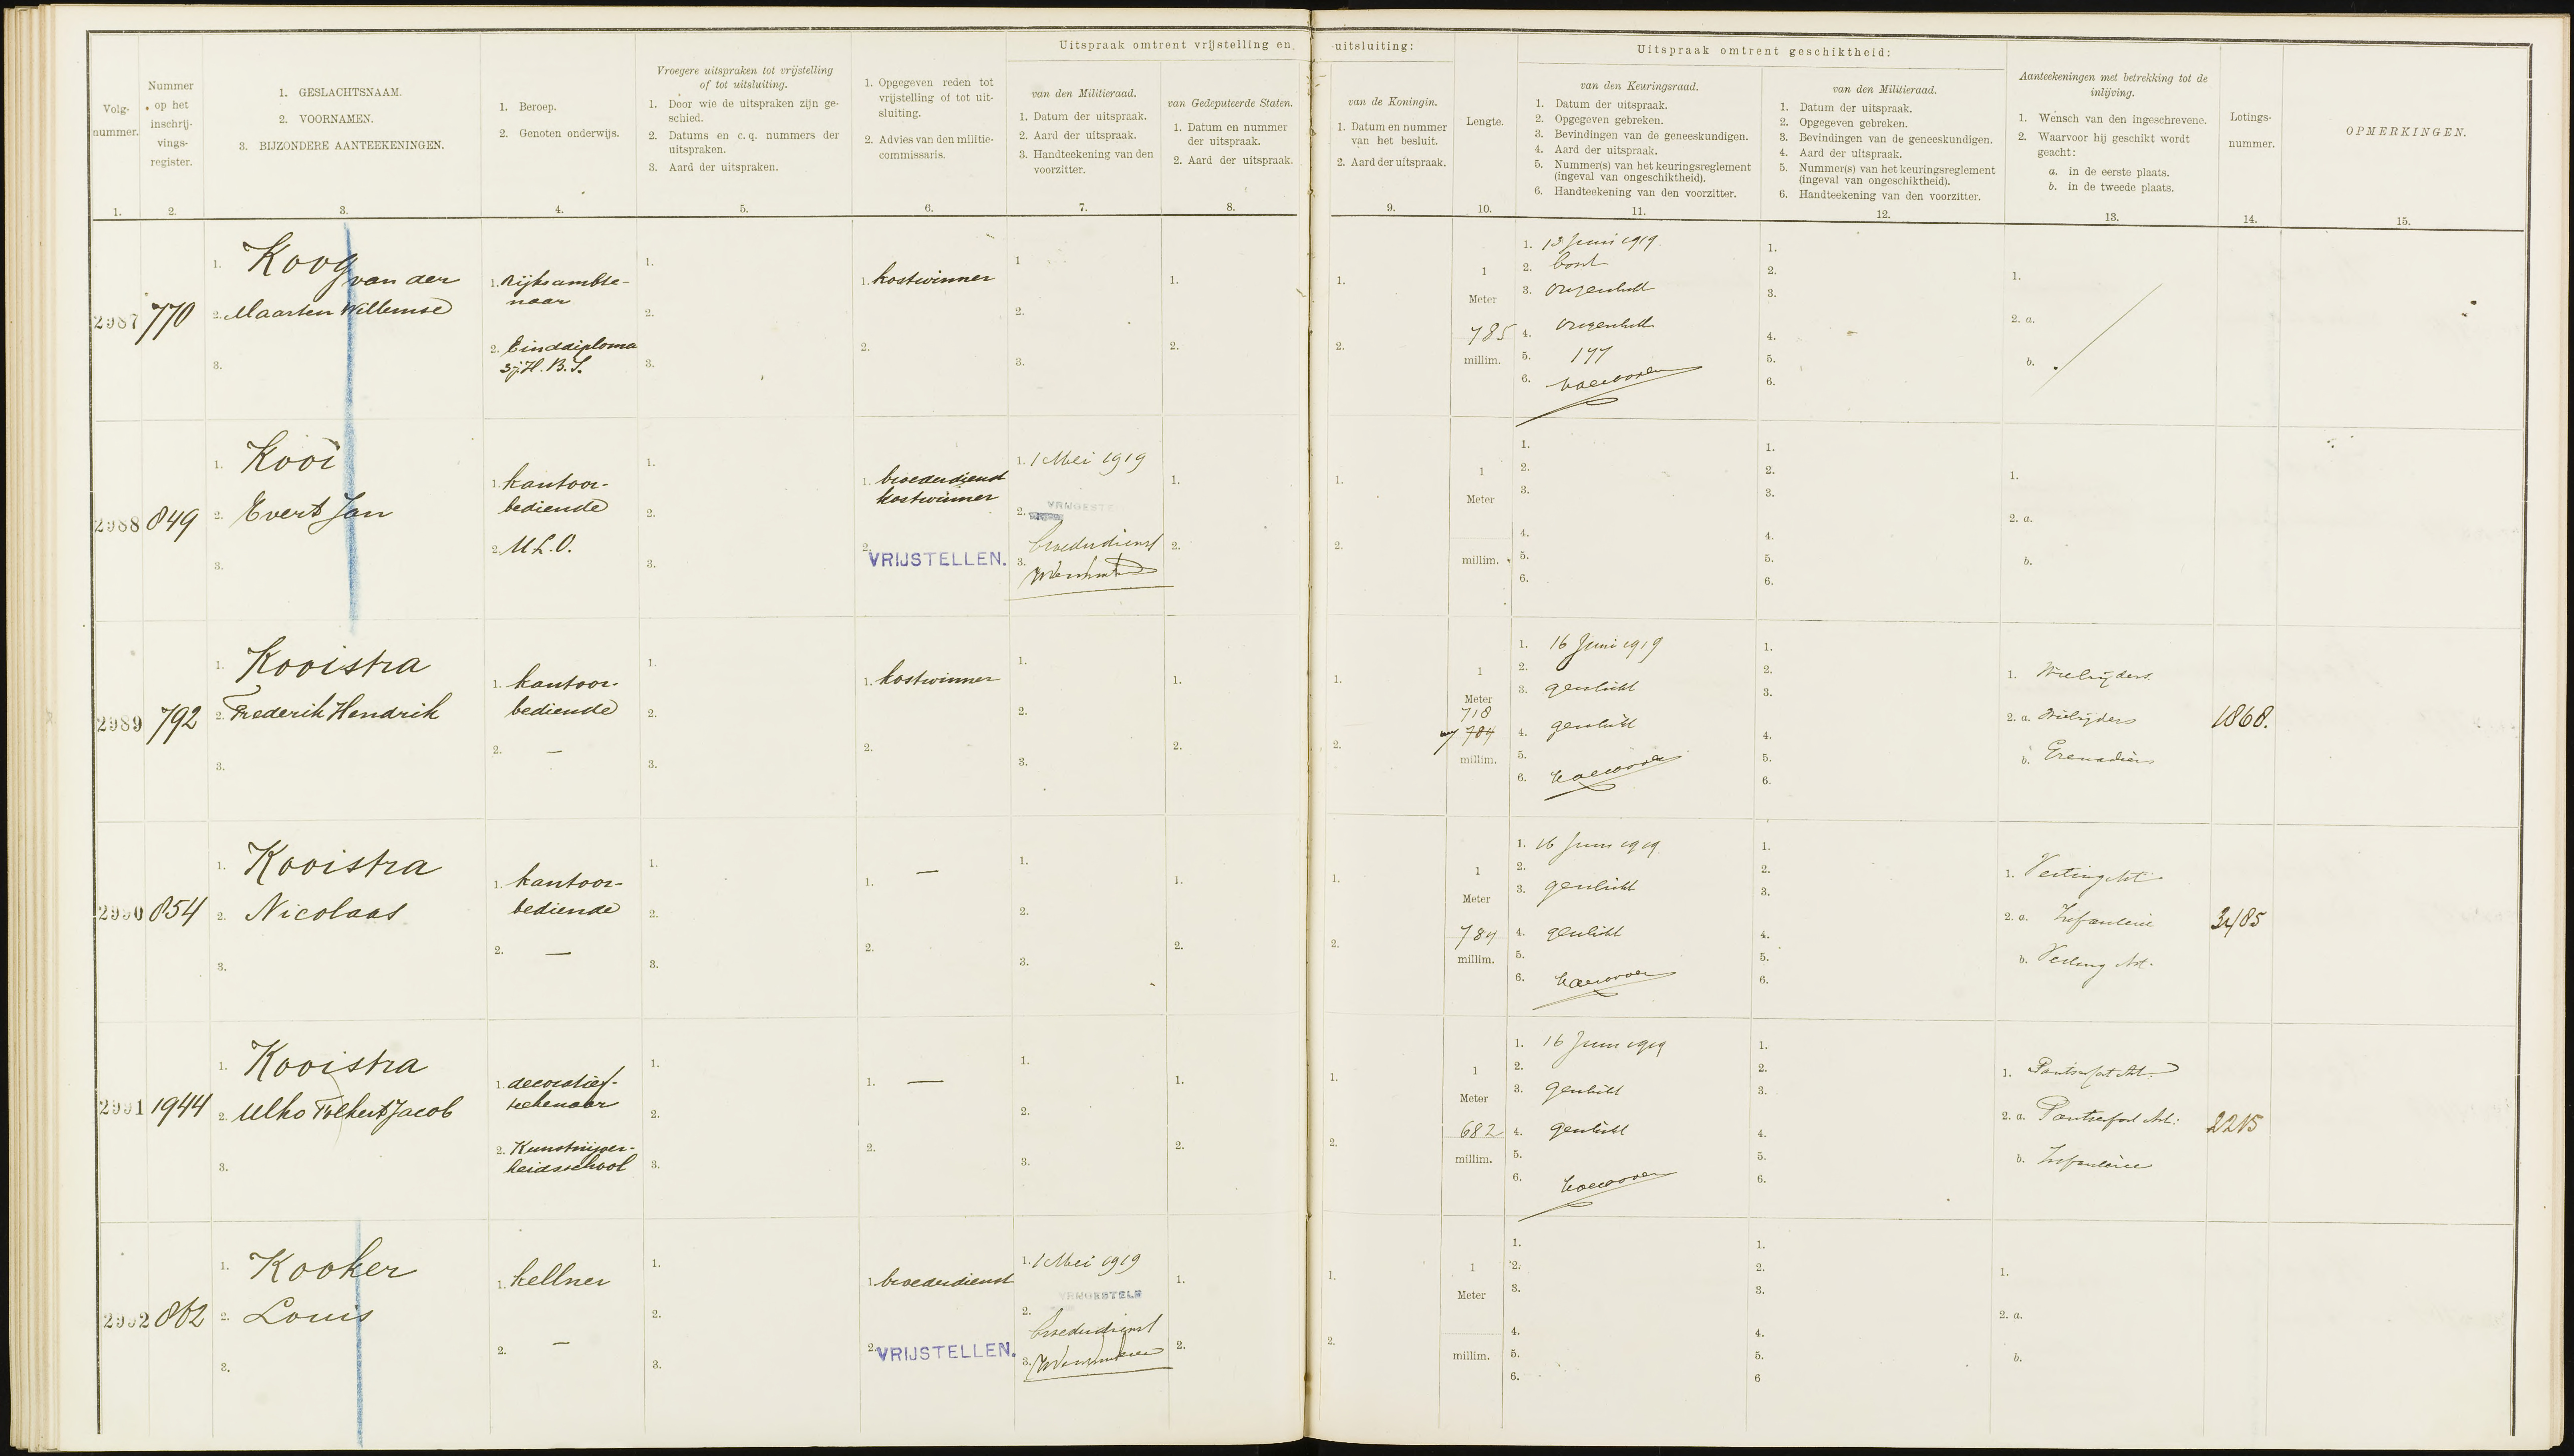 Uitspraak omtrent vrijstelling en uitsluiting:
Uitspraak omtrent geschiktheid:
Volg-
nummer.
1.
Nummer
op het
inschrij-
vings-
register.
2.
1. GESLACHTSNAAM.
2. VOORNAMEN.
3. BIJZONDERE AANTEEKENINGEN.
3.
1. Beroep.
2. Genoten onderwijs.
4.
Vroegere uitspraken tot vrijstelling
of tot uitsluiting.
1. Door wie de uitspraken zijn ge-
schied.
2. Datums en c.q. nummers der
uitspraken.
3. Aard der uitspraken.
5.
1. Opgegeven reden tot
vrijstelling of tot uit-
sluiting.
2. Advies van den militie-
commissaris.
6.
van den Militieraad.
1. Datum der uitspraak.
2. Aard der uitspraak.
3. Handteekening van den
voorzitter.
7.
van Gedeputeerde Staten.
1. Datum en nummer
der uitspraak.
2. Aard der uitspraak.
8.
van de Koningin.
1. Datum en nummer
van het besluit.
2. Aard der uitspraak.
9.
Lengte.
10.
van den Keuringsraad.
1. Datum der uitspraak.
2. Opgegeven gebreken.
3. Bevindingen van de geneeskundigen.
4. Aard der uitspraak.
5. Nummer(s) van het keuringsreglement
(ingeval van ongeschiktheid).
6. Handteekening van den voorzitter.
11.
van den Militieraad.
1. Datum der uitspraak.
2. Opgegeven gebreken.
3. Bevindingen van de geneeskundigen.
4. Aard der uitspraak.
5. Nummer(s) van het keuringsreglement
(ingeval van ongeschiktheid).
6. Handteekening van den voorzitter.
12.
Aanteekeningen met betrekking tot de
inlijving.
1. Wensch van den ingeschrevene.
2. Waarvoor hij geschikt wordt
geacht:
a. in de eerste plaats.
b. in de tweede plaats.
13.
Lotings-
nummer.
14.
OPMERKINGEN.
15.
2987
770
1. Koog van der
2. Maarten Willemse
3.
1. Rijksambte-
naar
2. Einddiploma
5j. H.B.S.
1.
2.
3.
1. kostwinner
2.
1
2.
3.
1.
2.
1.
2.
1
Meter
785
millim.
1. 13 Juni 1919
2.
3. ongeschikt
4. ongeschikt
5. 177
6.
1.
2.
3.
4.
5.
6.
1.
2. a.
b.
2988
849
1. Kooi
2. Evert Jan
3.
1. kantoor-
bediende
2. M.L.O.
1.
2.
3.
1. broederdienst
kostwinner
2. VRIJSTELLEN.
1. 1 Mei 1919
2. VRIJGESTE
broederdienst
3.
1.
2.
1.
2.
1
Meter
millim.
1.
2.
3.
4.
5.
6.
1.
2.
3.
4.
5.
6.
1.
2. a.
b.
2989
792
1. Kooistra
2. Frederik Hendrik
3.
1. kantoor-
bediende
2. —
1.
2.
3.
1. kostwinner
2.
1.
2.
3.
1.
2.
1.
2.
1
Meter
718
784
millim.
1. 16 Juni 1919
2.
3. geschikt
4. geschikt
5.
6.
1.
2.
3.
4.
5.
6.
1. Wielrijders
2. a. Wielrijders
b. Grenadiers
1868.
2990
854
1. Kooistra
2. Nicolaas
3.
1. kantoor-
bediende
2. —
1.
2.
3.
1. —
2.
1.
2.
3.
1.
2.
1.
2.
1
Meter
784
millim.
1. 16 Juni 1919
2.
3. geschikt
4. geschikt
5.
6.
1.
2.
3.
4.
5.
6.
1. Vesting Art.
2. a. Infanterie
b. Vesting Art.
3485
2991
1944
1. Kooistra
2. Ulko Folkert Jacob
3.
1. decoratief-
teekenaar
2. Kunstnijver-
heidsschool
1.
2.
3.
1. —
2.
1.
2.
3.
1.
2.
1.
2.
1
Meter
682
millim.
1. 16 Juni 1919
2.
3. geschikt
4. geschikt
5.
6.
1.
2.
3.
4.
5.
6.
1. Pantserfort Art.
2. a. Pantserfort Art.
b. Infanterie
2215
2992
862
1. Kooker
2. Louis
3.
1. kellner
2. —
1.
2.
3.
1. broederdienst
2. VRIJSTELLEN.
1. 1 Mei 1919
2. VRIJGESTELD
broederdienst
3.
1.
2.
1.
2.
1
Meter
millim.
1.
2.
3.
4.
5.
6.
1.
2.
3.
4.
5.
6
1.
2. a.
b.